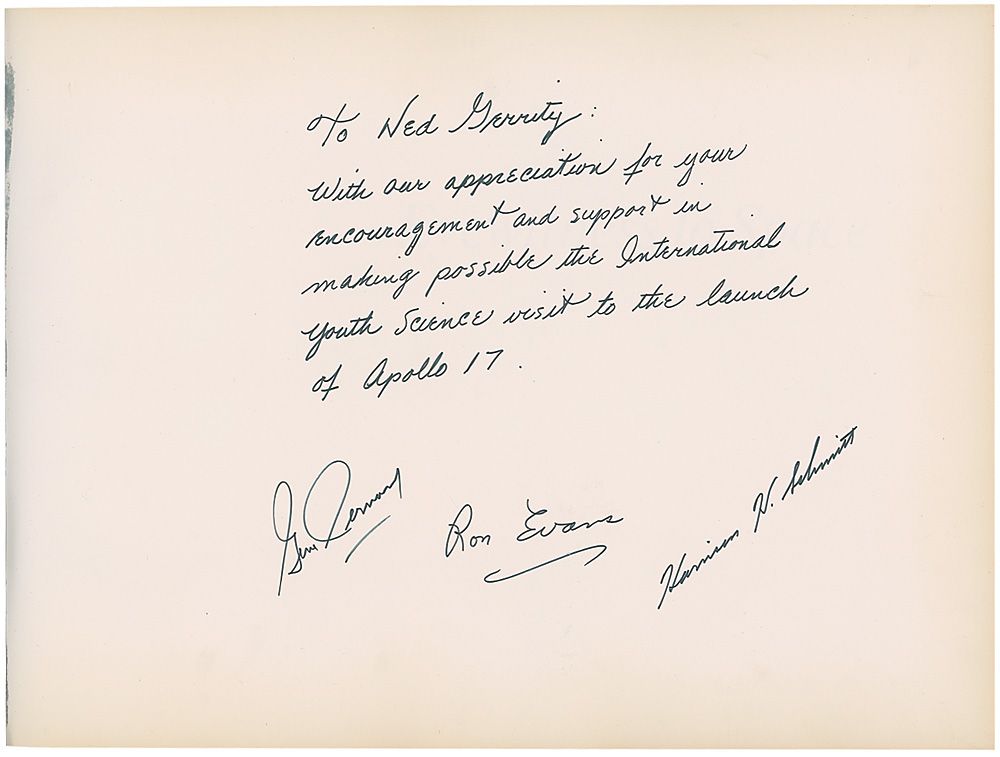 To Ned Gerrity:
With our appreciation for your
encouragement and support in
making possible the International
Youth Science visit to the launch
of Apollo 17.
Gene Cernan
Ron Evans
Harrison H. Schmitt